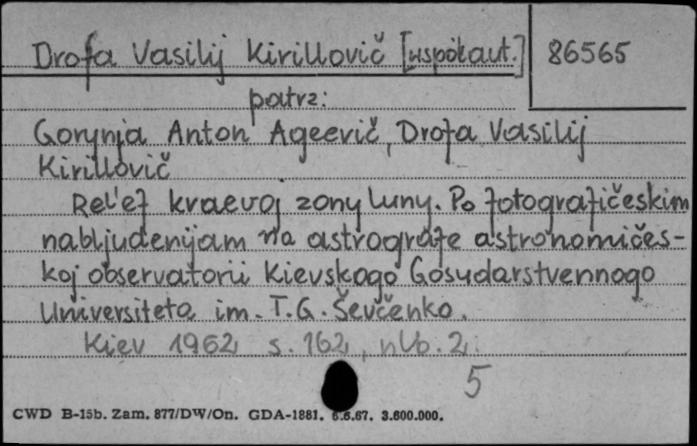 Drofa Vasilij Kirillovič [współaut.] 86565
patrz:
Gorynja Anton Ageevič, Drofa Vasilij
Kirillovič
Rel'ef kraevoj zony luny. Po fotografičeskim
nabljudenijam na astrografe astronomičes-
koj observatorii Kievskogo Gosudarstvennogo
Universiteta im. T.G. Ševčenko.
Kiev 1962 s. 162, nlb. 2.
5
CWD B-15b. Zam. 877/DW/On. GDA-1881. 6.6.67. 3.600.000.